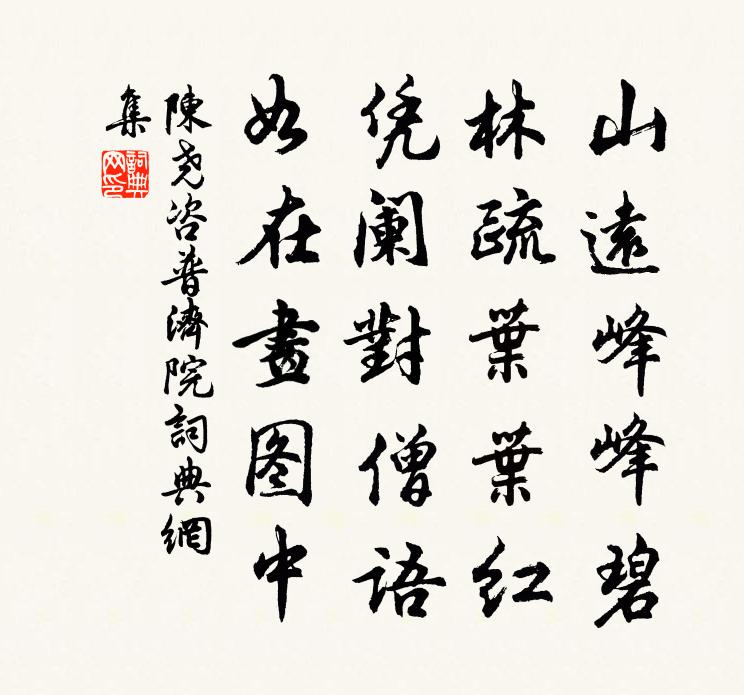 山遠峰峰碧
林疏葉葉紅
凭阑對僧語
如在畫图中
陳堯咨普濟院詞典網
集
詞典网印